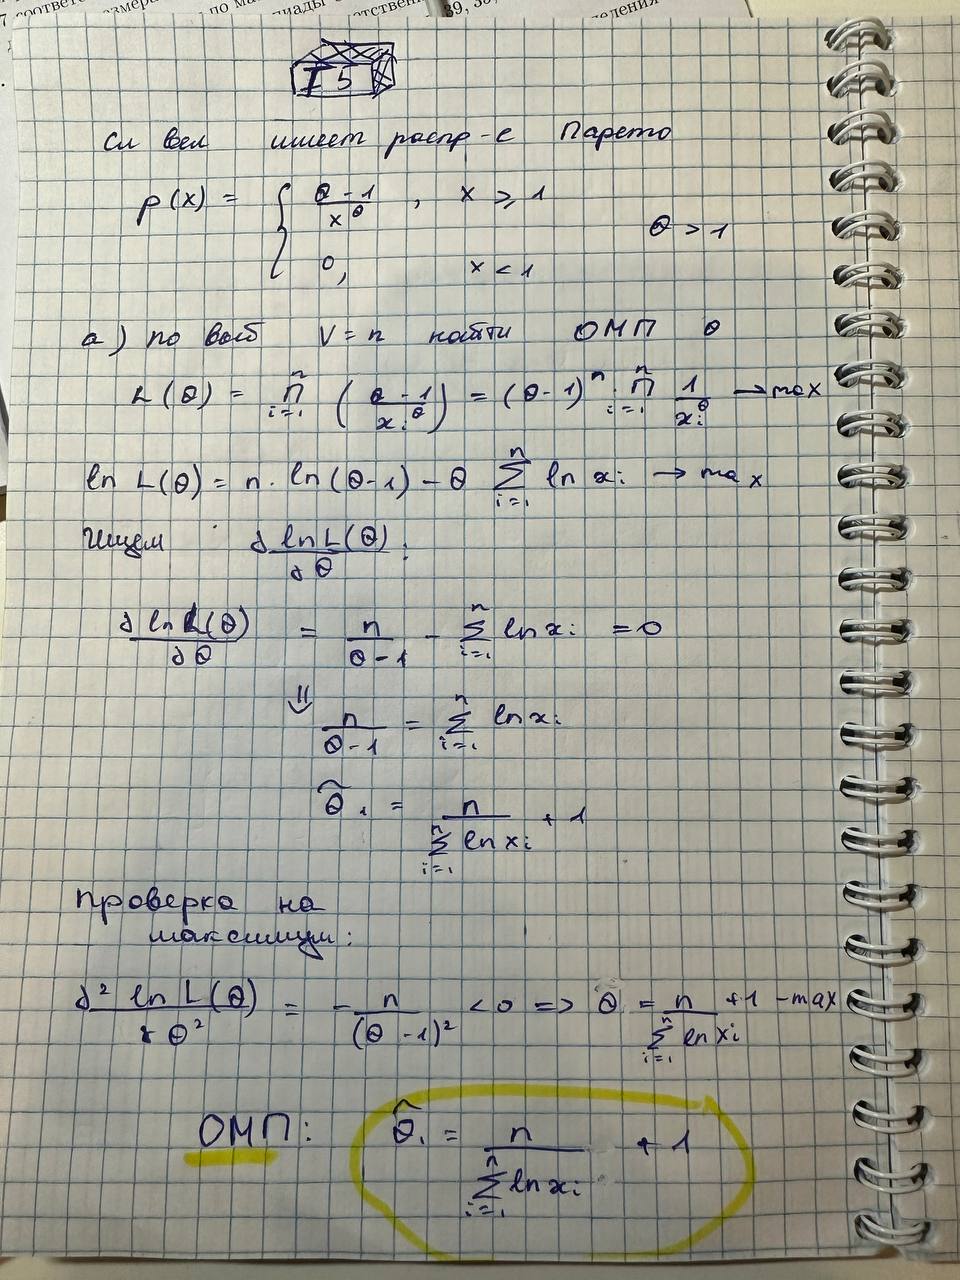 7 соответс
размера
по ма
лиады
тственн
39, 3
деления
I 5
Сл вел имеет распр-е Парето
p(x) = { θ-1 / x^θ , x ⩾ 1
θ > 1
0, x < 1
а) по выб V = n найти ОМП θ
L(θ) = ∏_{i=1}^{n} (θ-1 / x_i^θ) = (θ-1)^n · ∏_{i=1}^{n} 1/x_i^θ → max
ln L(θ) = n · ln(θ-1) - θ ∑_{i=1}^{n} ln x_i → max
Ищем ∂ ln L(θ) / ∂θ :
∂ ln L(θ) / ∂θ = n / θ-1 - ∑_{i=1}^{n} ln x_i = 0
⇓
n / θ-1 = ∑_{i=1}^{n} ln x_i
θ̃_1 = n / ∑_{i=1}^{n} ln x_i + 1
Проверка на
максимум:
∂² ln L(θ) / ∂θ² = - n / (θ-1)² < 0 => θ̂ = n / ∑_{i=1}^{n} ln x_i + 1 - max
ОМП: θ̂_1 = n / ∑_{i=1}^{n} ln x_i + 1